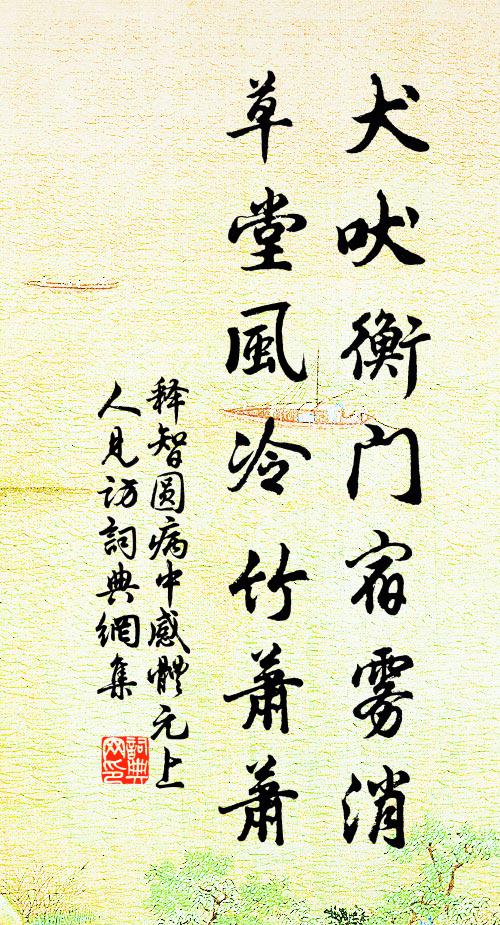 犬吠衡门宿雾消
草堂風冷竹萧萧
释智圆病中感體元上
人見访詞典網集